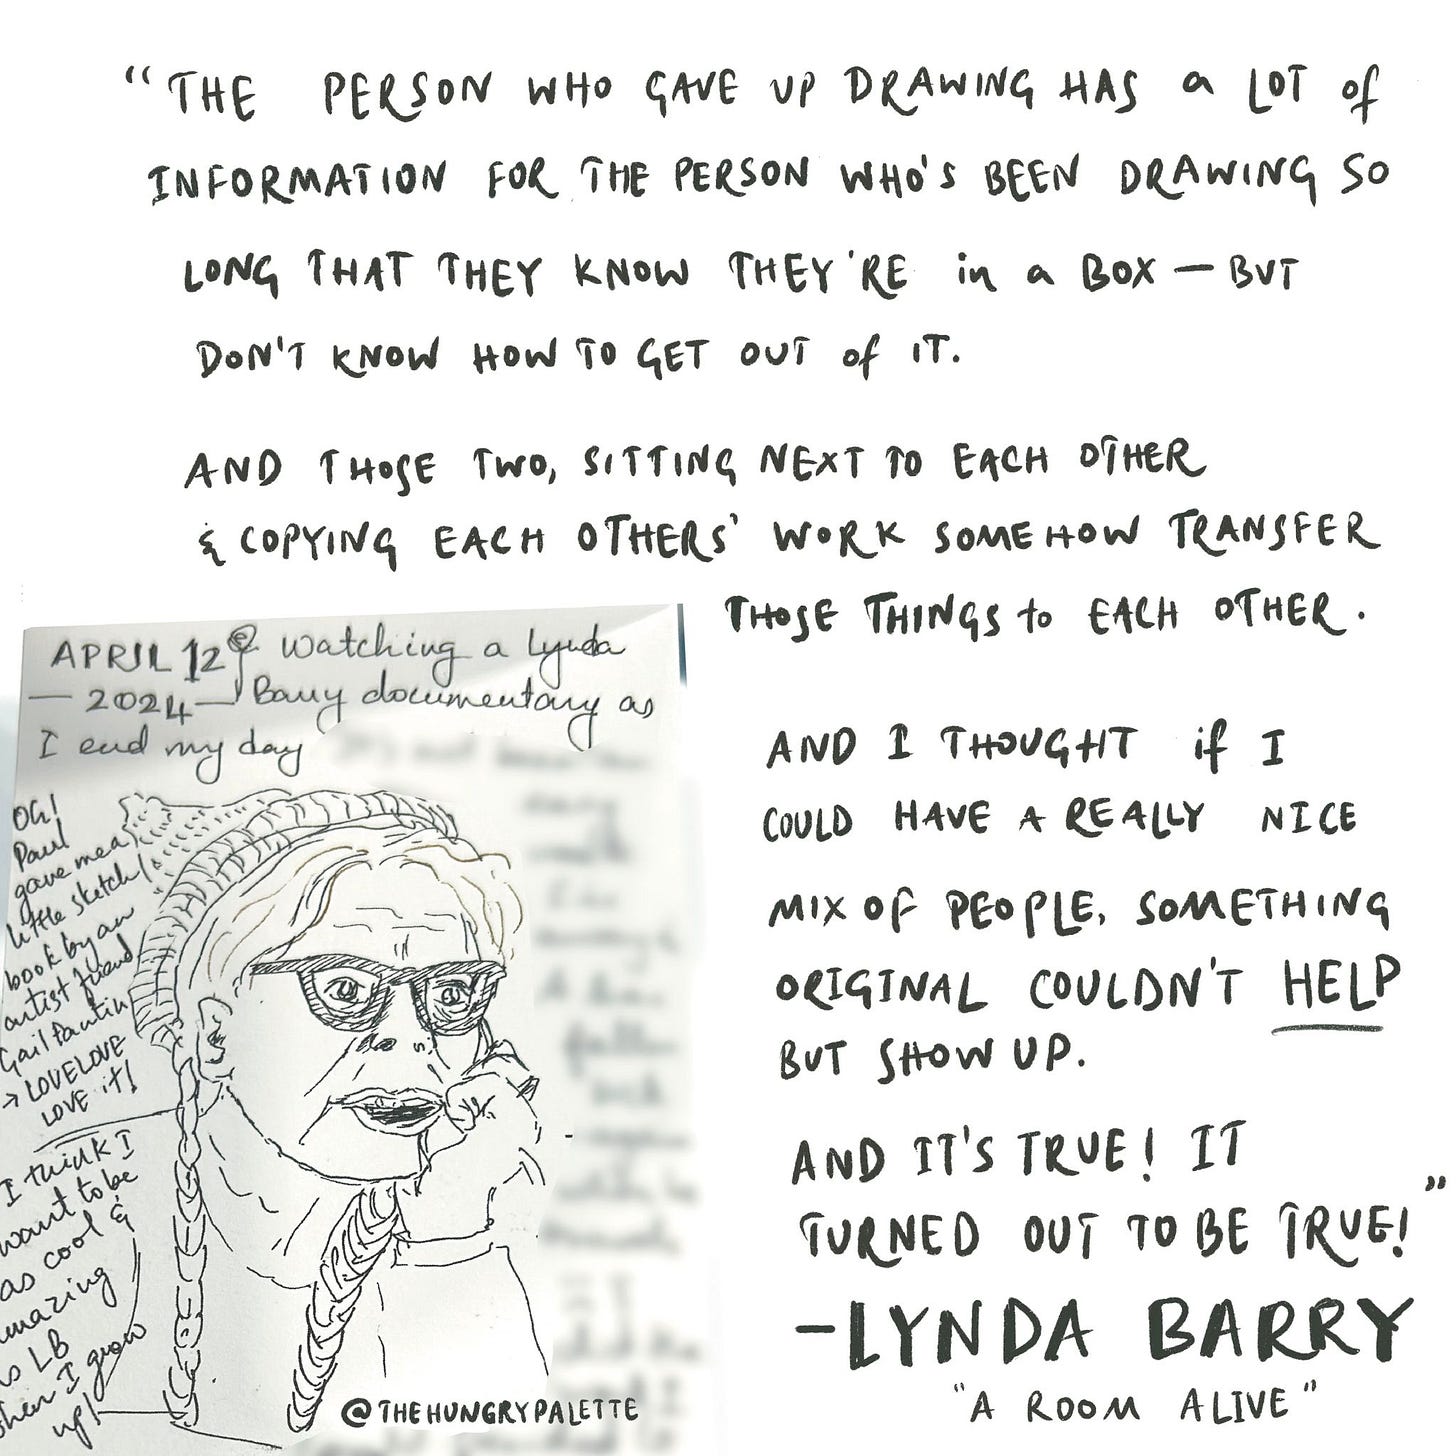 “THE PERSON WHO GAVE UP DRAWING HAS a LOT of
INFORMATION FOR THE PERSON WHO'S BEEN DRAWING SO
LONG THAT THEY KNOW THEY'RE in a BOX — BUT
DON'T KNOW HOW TO GET OUT of IT.
AND THOSE TWO, SITTING NEXT TO EACH OTHER
& COPYING EACH OTHERS' WORK SOMEHOW TRANSFER
THOSE THINGS to EACH OTHER.
AND I THOUGHT if I
COULD HAVE A REALLY NICE
MIX OF PEOPLE, SOMETHING
ORIGINAL COULDN'T HELP
BUT SHOW UP.
AND IT'S TRUE! IT
TURNED OUT TO BE TRUE!”
-LYNDA BARRY
"A ROOM ALIVE"
APRIL 12 Watching a Lynda
— 2024 — Barry documentary as
I end my day
Oh!
Paul
gave me a
little sketch
book by an
artist friend
Gail
→ LOVE LOVE
LOVE it!
I think I
want to be
as cool &
amazing
as LB
when I grow
up!
@THEHUNGRYPALETTE